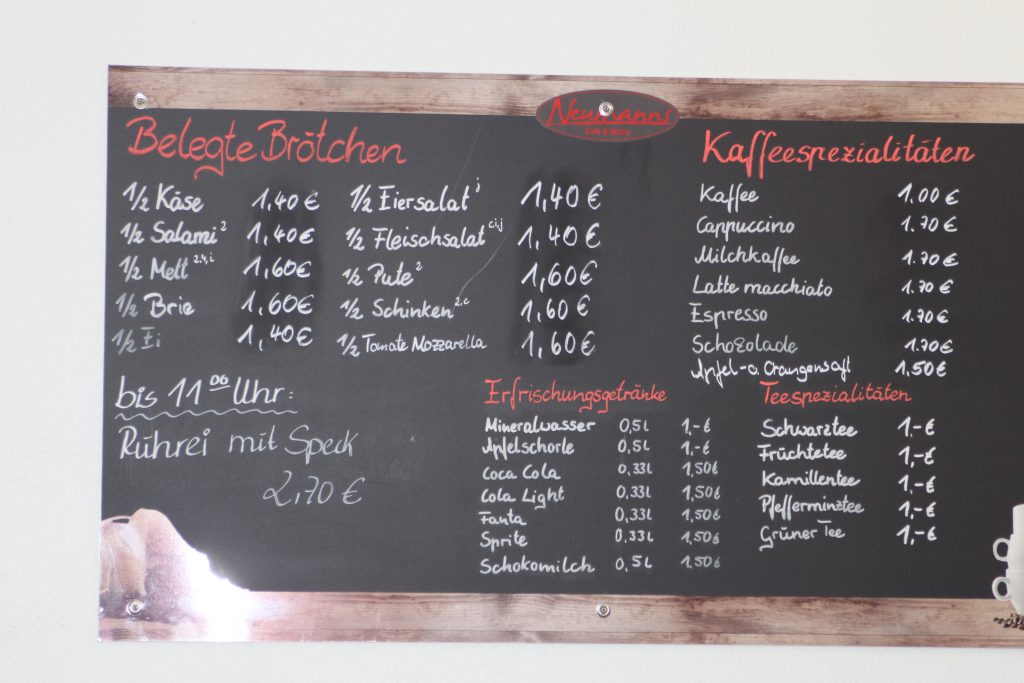 Neumanns
Belegte Brötchen
1/2 Käse 1,40 €
1/2 Salami 2 1,40 €
1/2 Mett 2,4,i 1,60 €
1/2 Brie 1,60 €
1/2 Ei 1,40 €
1/2 Eiersalat j 1,40 €
1/2 Fleischsalat c,i,j 1,40 €
1/2 Pute 2 1,60 €
1/2 Schinken 2,c 1,60 €
1/2 Tomate Mozzarella 1,60 €
bis 11 00 Uhr:
Rührei mit Speck
2,70 €
Kaffeespezialitäten
Kaffee 1.00 €
Cappuccino 1.70 €
Milchkaffee 1.70 €
Latte macchiato 1.70 €
Espresso 1.70 €
Schokolade 1.70 €
Apfel- o. Orangensaft 1,50 €
Erfrischungsgetränke
Mineralwasser 0,5L 1,- €
Apfelschorle 0,5L 1,- €
Coca Cola 0,33L 1,50 €
Cola Light 0,33L 1,50 €
Fanta 0,33L 1,50 €
Sprite 0,33L 1,50 €
Schokomilch 0,5L 1,50 €
Teespezialitäten
Schwarztee 1,- €
Früchtetee 1,- €
Kamillentee 1,- €
Pfefferminztee 1,- €
Grüner Tee 1,- €